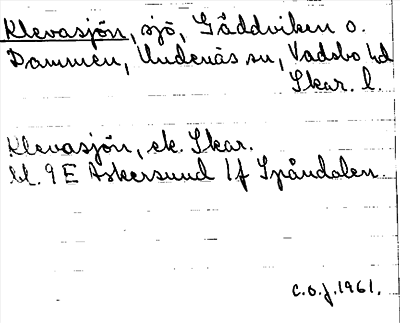 Klevasjön, sjö, Gäddviken o.
Dammen, Undenäs sn, Vadsbo hd
Skar. l.
Klevasjön, ek. Skar.
bl. 9 E Askersund 1f Spåndalen.
c.o.j. 1961.